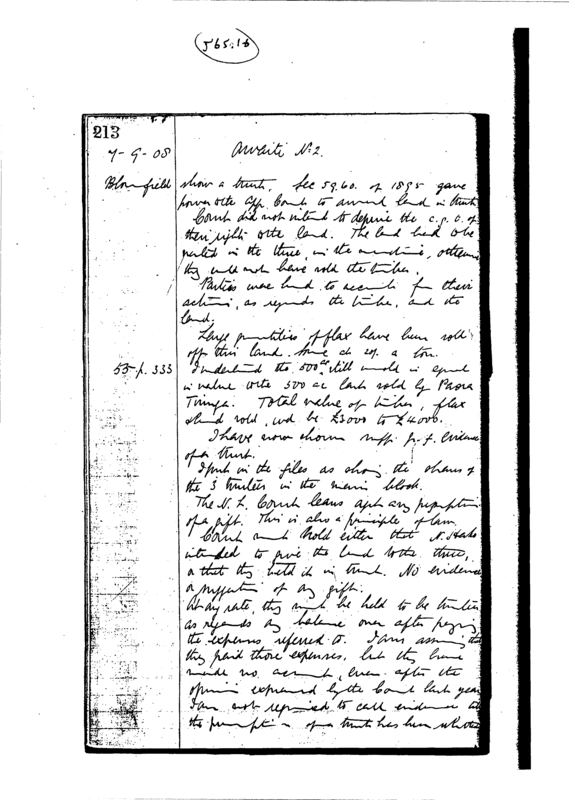 565.16
213
7-9-08 Awaiti No 2.
Blomfield show a trust, Sec 59.60. of 1895 gave
power to the App. Court to award land in trust
Court did not intend to deprive the c.q.t. of
their rights to the land. The land had to be
vested in the three, in the meantime, otherwise
they could not have sold the timber.
Parties were bound to account for their
actions, as regards the timber, and the
land.
Large quantities of flax have been sold
off this land. Some at 20/. a ton.
55 p. 333 I understand the 500 ac still unsold is equal
in value to the 500 ac last sold by Paora
Tiunga. Total value of timber, flax
land sold, wd be £3000 to £4000.
I have now shown suff. p.f. evidence
of a trust.
I put in the files as showing the shares of
the 3 trustees in the main block.
The N. L. Court leans agst any presumption
of a gift. This is also a principle of law.
Court must hold either that N. 
intended to give the land to the three,
or that they held it in trust. No evidence
or suggestion of any gift.
At any rate, they must be held to be trustees
as regards any balance over after paying
the expenses referred to. I am assuming that
they paid those expenses, but they have
made no account, even after the
opinion expressed by the Court last year
I am not required to call evidence till
the presumption of a trust has been rebutted